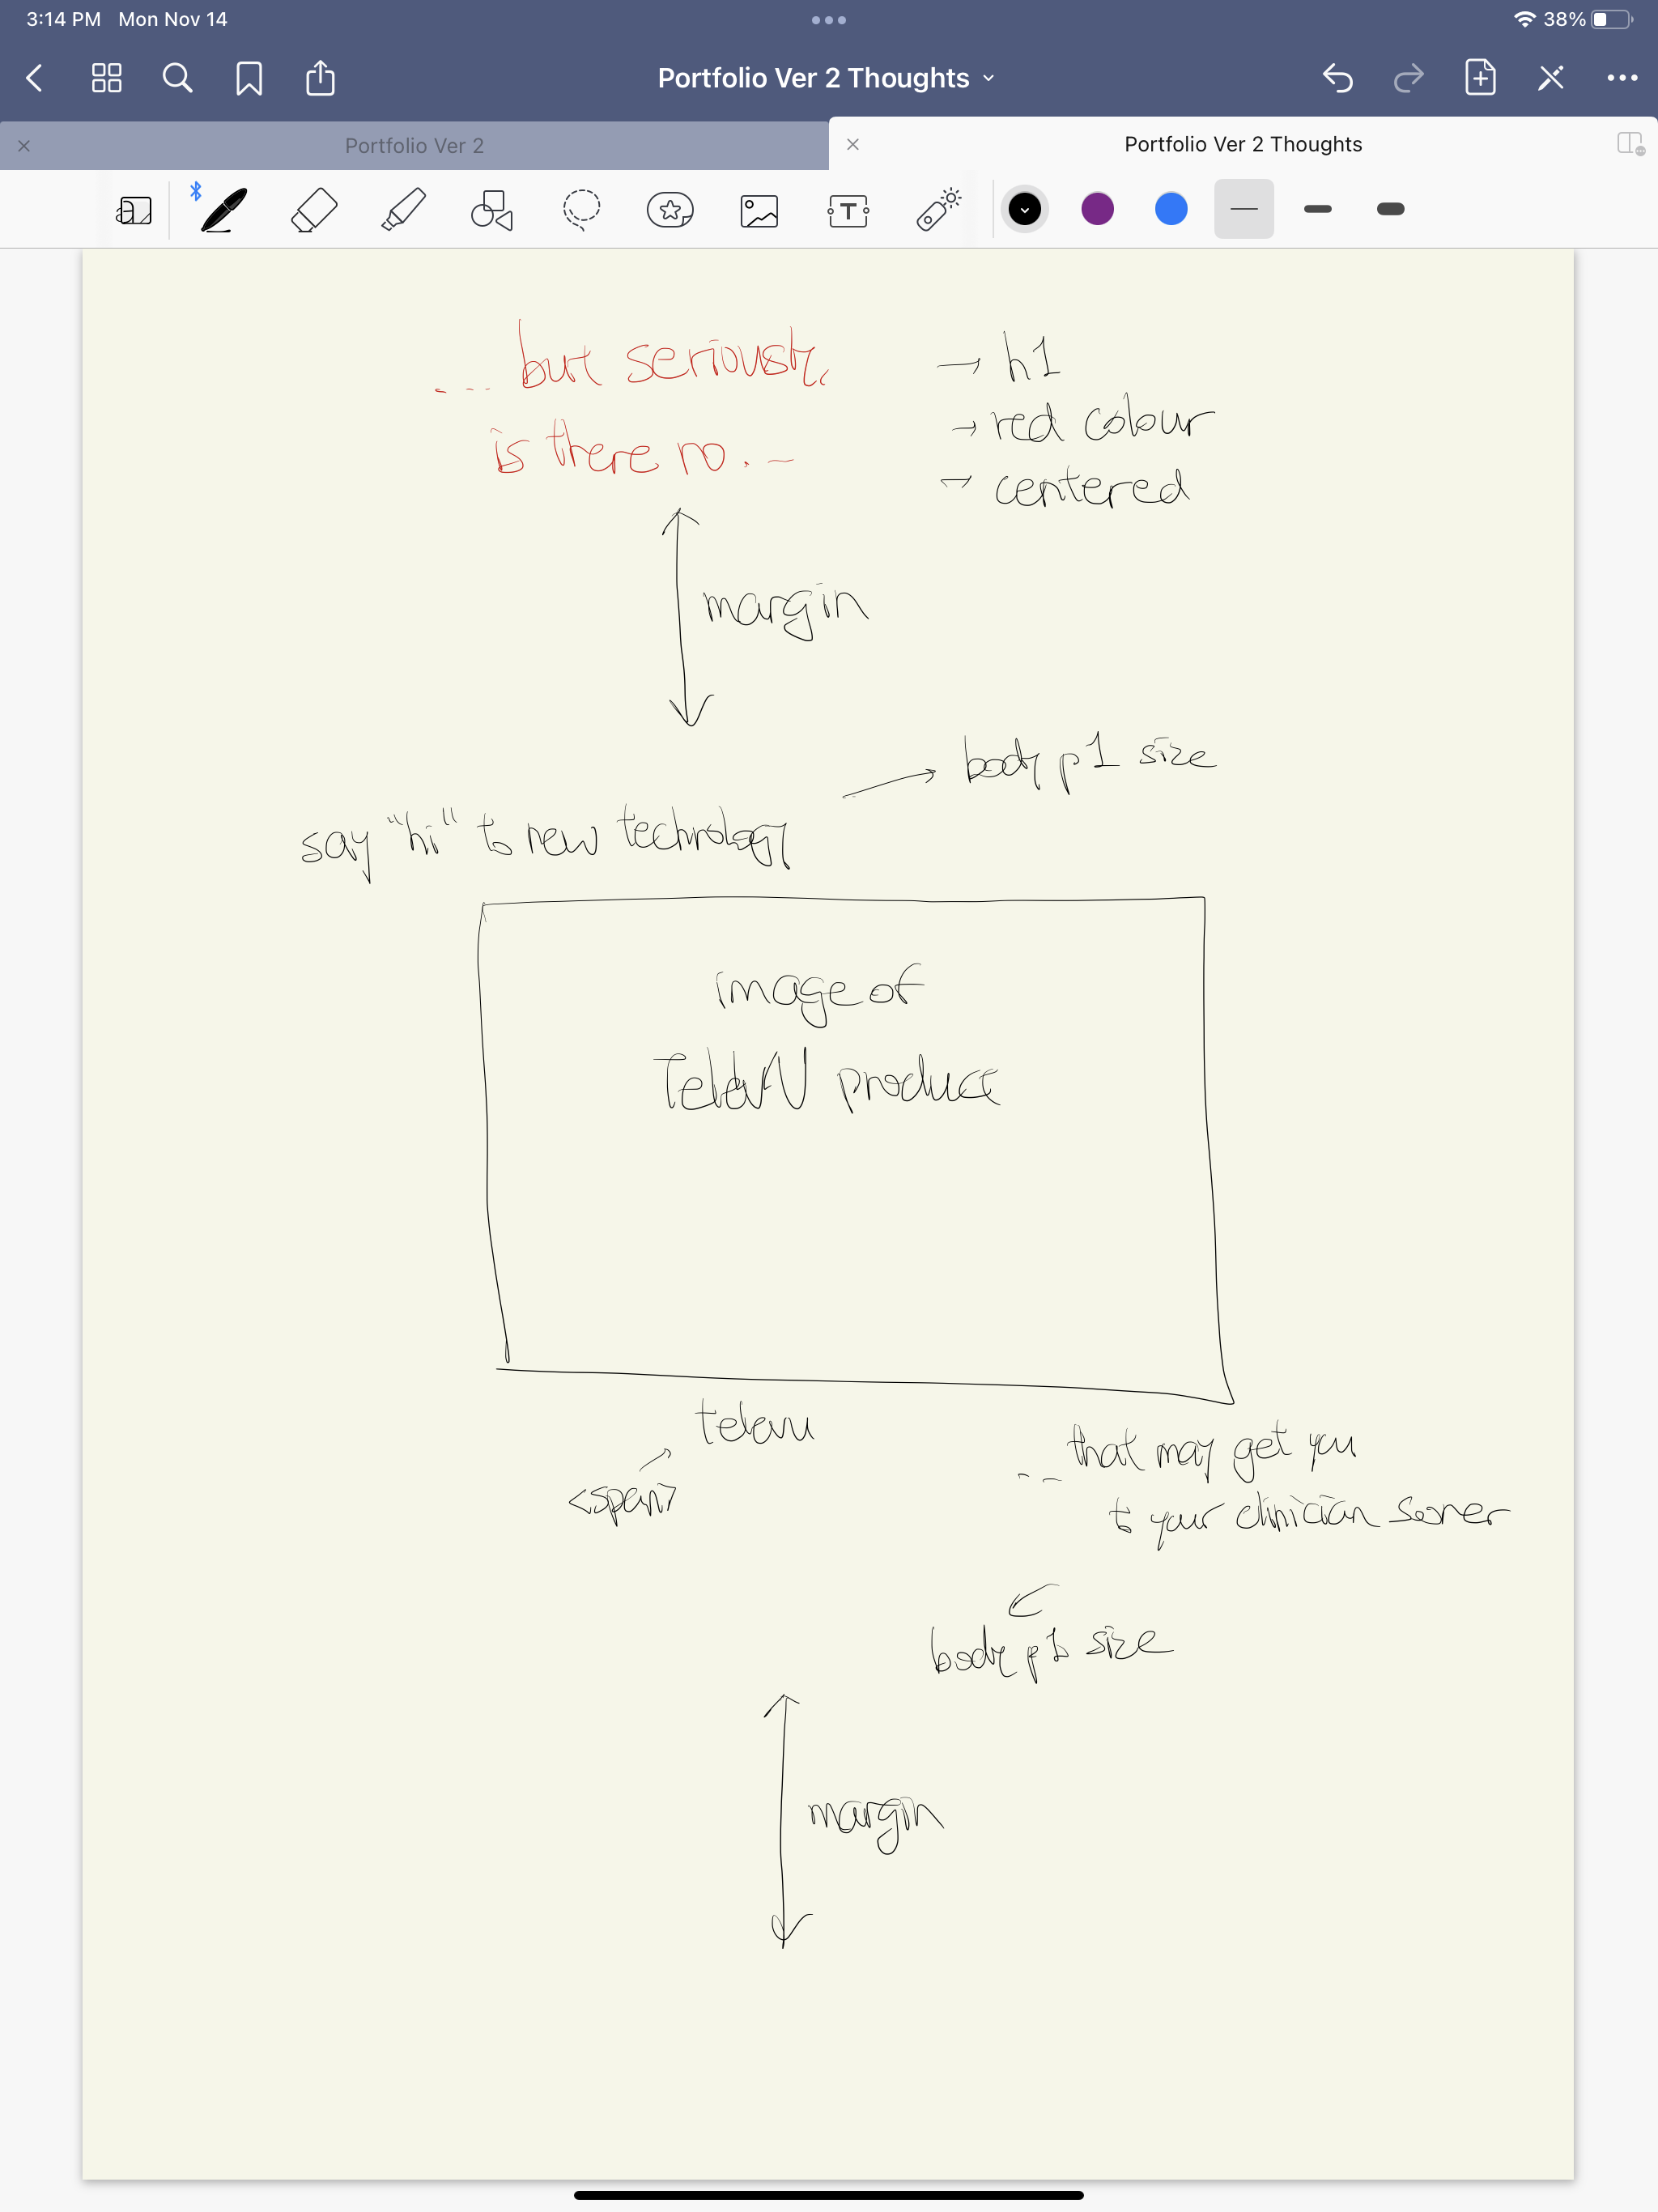 3:14 PM Mon Nov 14
38%
Portfolio Ver 2 Thoughts
Portfolio Ver 2
Portfolio Ver 2 Thoughts
... but seriously,
is there no...
→ h1
→ red colour
→ centered
margin
→ body p1 size
say "hi" to new technology
image of
product
<span>
... that may get you
to your clinician sooner
body p1 size
margin